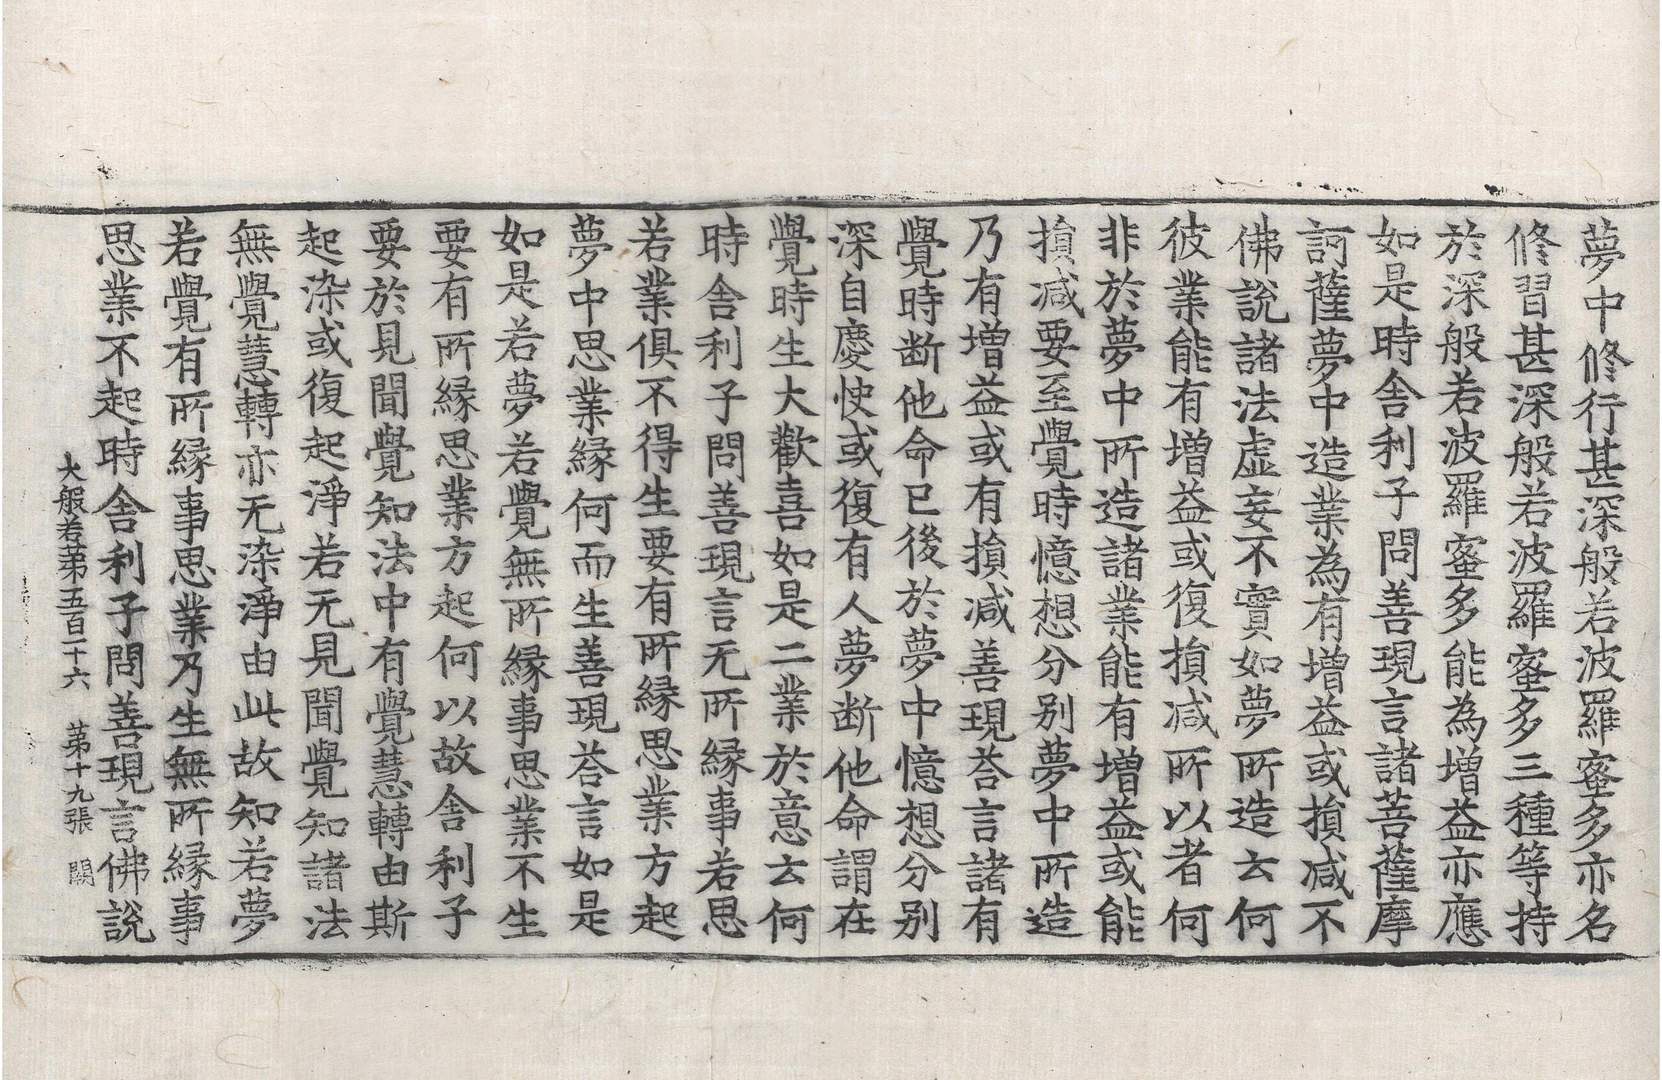 夢中修行甚深般若波羅蜜多亦名
修習甚深般若波羅蜜多三種等持
於深般若波羅蜜多能為增益亦應
如是時舍利子問善現言諸菩薩摩
訶薩夢中造業為有增益或損减不
佛說諸法虛妄不實如夢所造云何
彼業能有增益或復損减所以者何
非於夢中所造諸業能有增益或能
損减要至覺時憶想分别夢中所造
乃有增益或有損减善現荅言諸有
覺時断他命已後於夢中憶想分别
深自慶快或復有人夢断他命謂在
覺時生大歡喜如是二業於意云何
時舍利子問善現言无所緣事若思
若業俱不得生要有所緣思業方起
夢中思業緣何而生善現荅言如是
如是若夢若覺無所緣事思業不生
要有所緣思業方起何以故舍利子
要於見聞覺知法中有覺慧轉由斯
起染或復起淨若无見聞覺知諸法
無覺慧轉亦无染淨由此故知若夢
若覺有所緣事思業乃生無所緣事
思業不起時舍利子問善現言佛說
大般若第五百十六 第十九張 闕